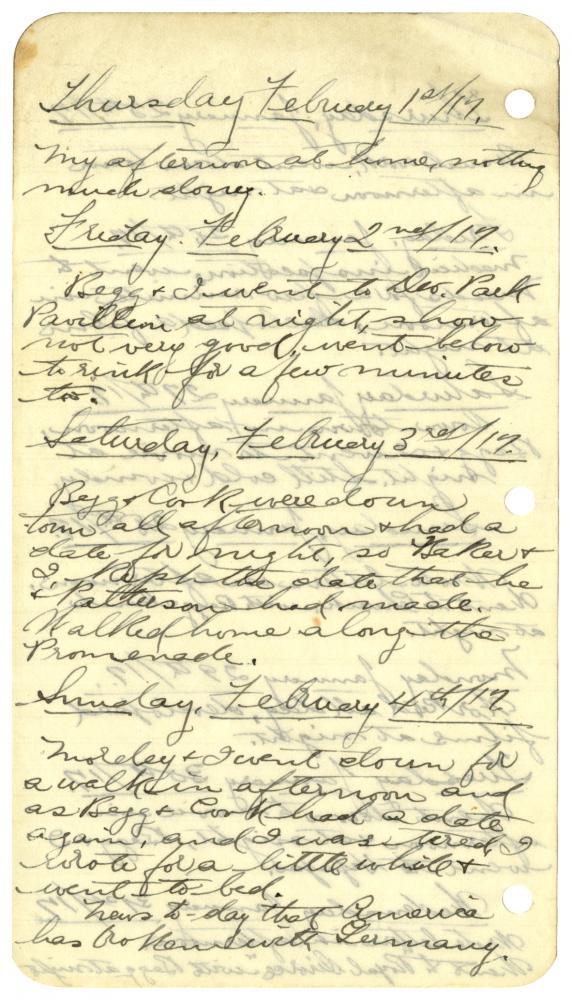 Thursday February 1st/17.
My afternoon at home, nothing
much doing.
Friday. February 2nd/17.
Begg & I went to Dev. Park
Pavillion at night, show
not very good, went below
to rink for a few minutes
to.
Saturday, February 3rd/17.
Begg & Cook were down
town all afternoon & had a
date for night, so Baker &
I, kept the date that he
& Patterson had made.
Walked home along the
Promenade.
Sunday, February 4th/17
Morday & I went down for
a walk in afternoon and
as Begg & Cook had a date
again, and I was tired, I
wrote for a little while &
went to bed.
News to-day that America
has broken with Germany.